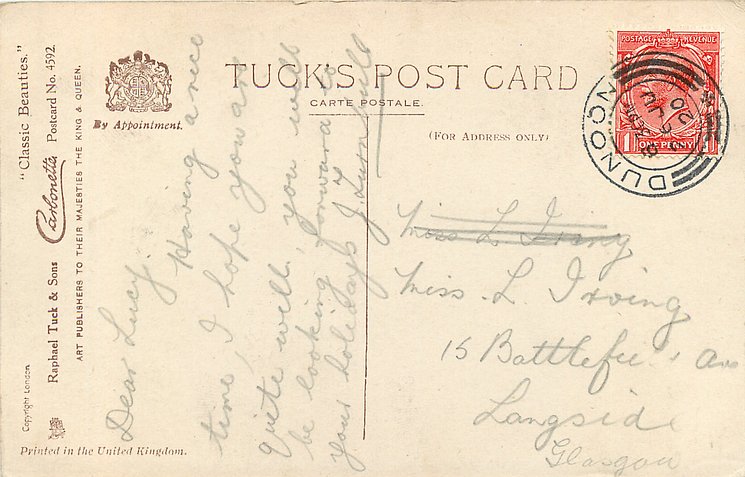 TUCK'S POST CARD
CARTE POSTALE.
(FOR ADDRESS ONLY)
By Appointment.
"Classic Beauties."
Carbonette Postcard No. 4592.
Raphael Tuck & Sons
ART PUBLISHERS TO THEIR MAJESTIES THE KING & QUEEN.
Copyright London
Printed in the United Kingdom.
POSTAGE REVENUE
ONE PENNY
DUNOON
Dear Lucy.
Having a nice
time, I hope you are
quite well, you will
be looking forward to
your holidays J. Turnbull
Miss L. Irving
15 Battlefield Av
Langside
Glasgow